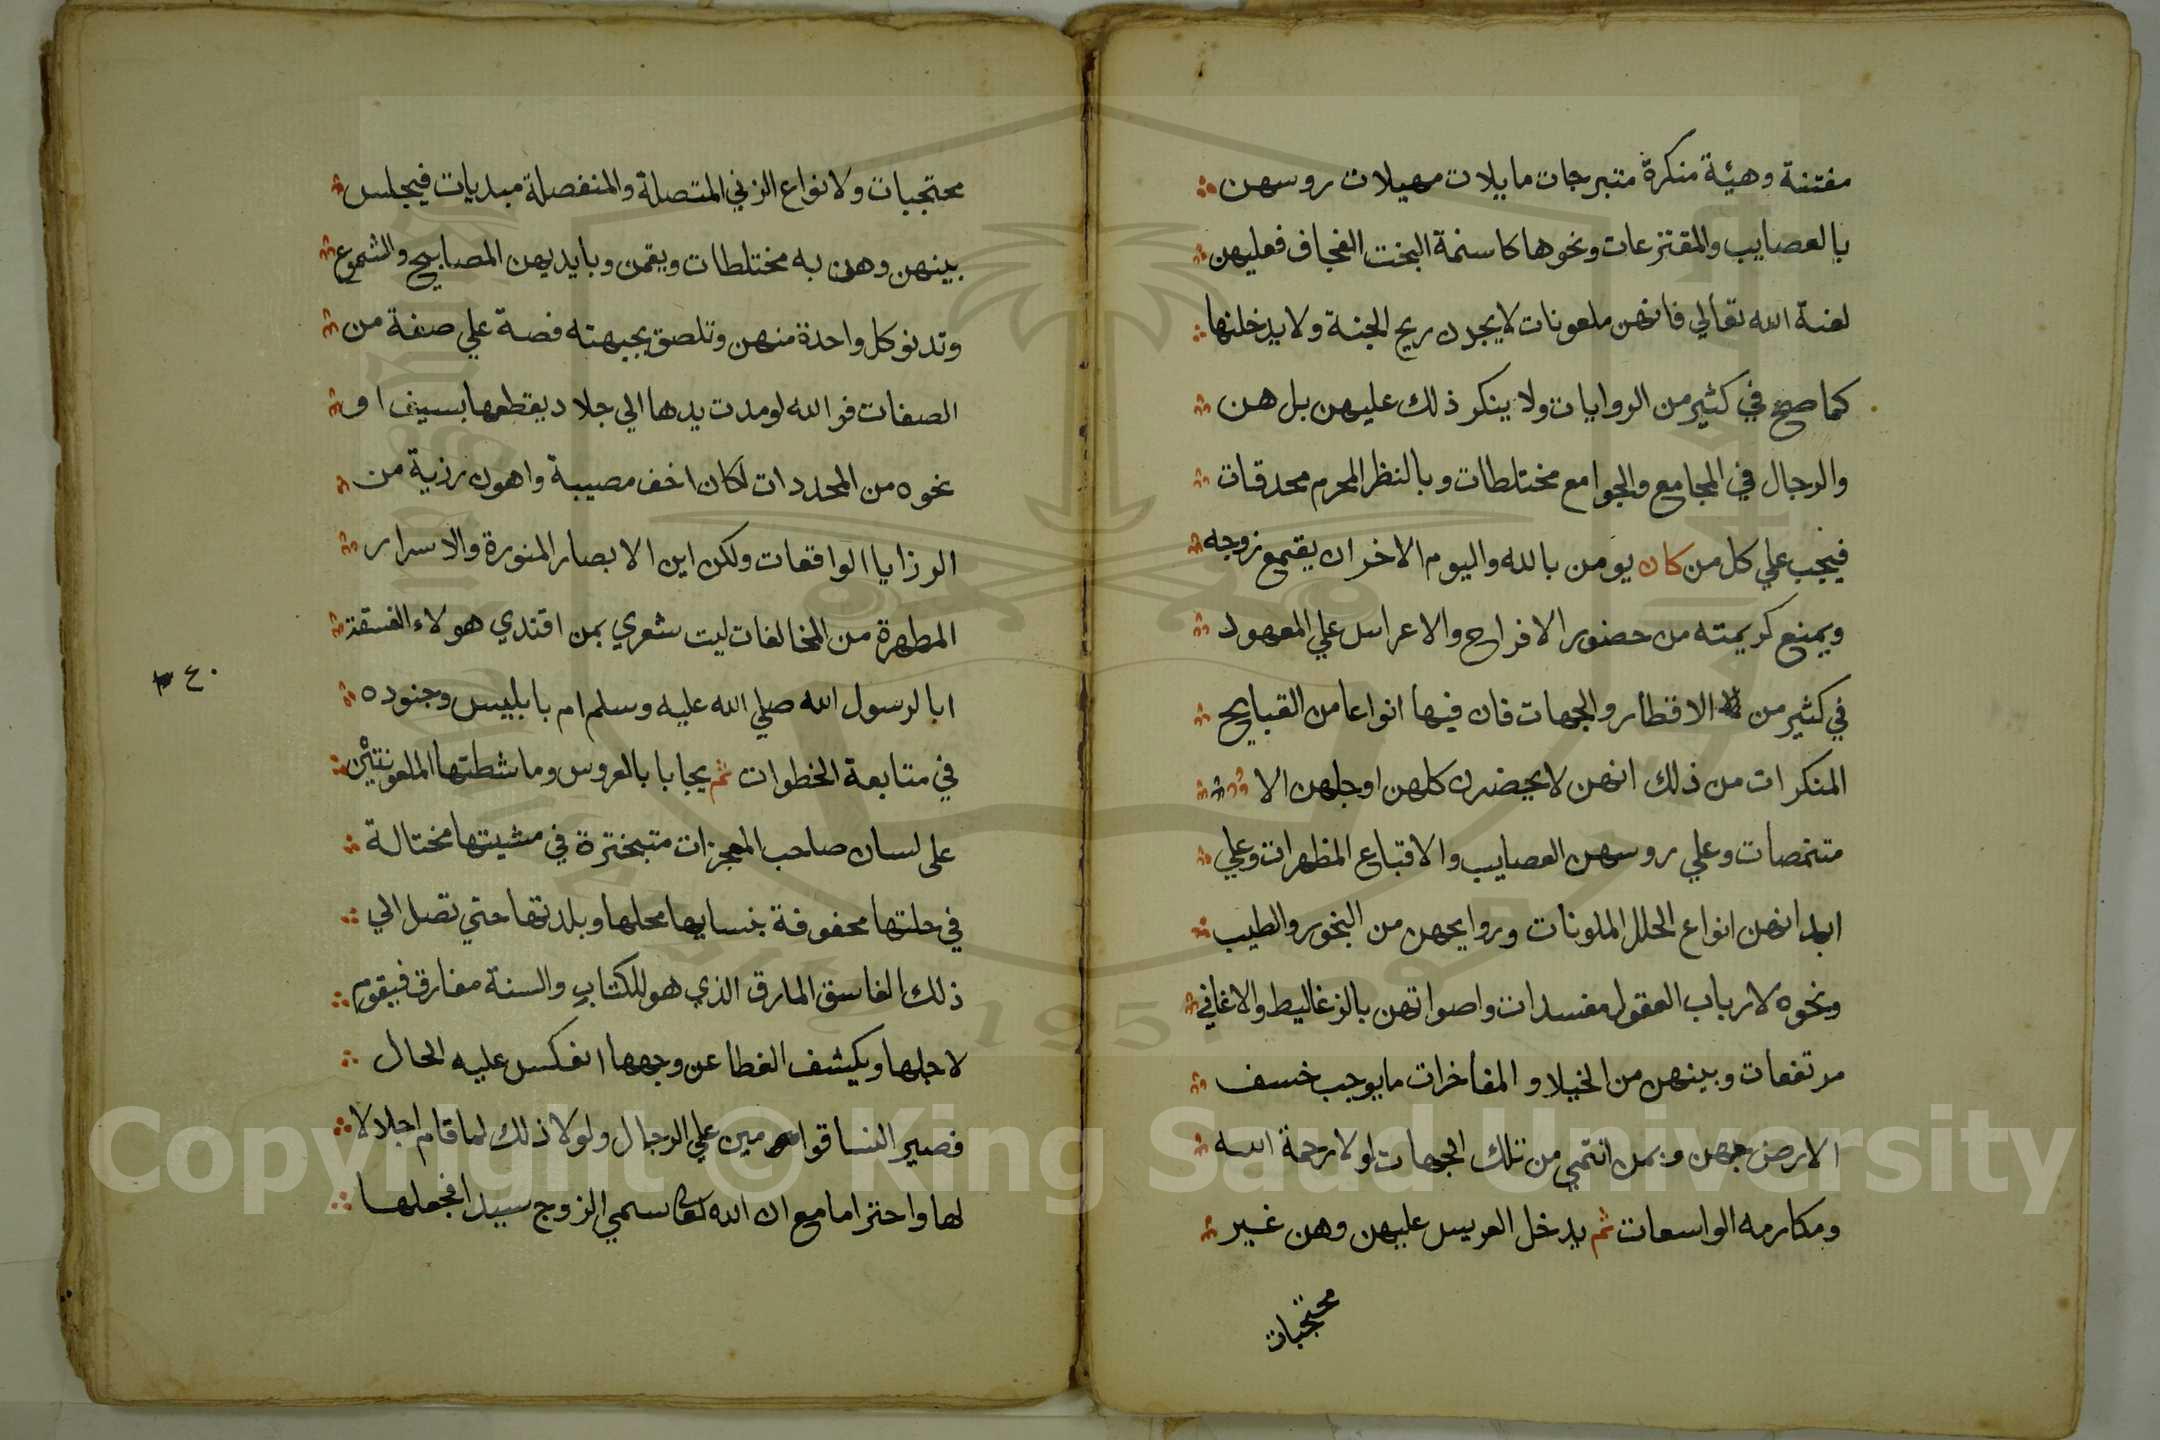 مفتنة وهيئة منكرة متبرجات مايلات مهيلات روسهن
بالعصايب والمقنزعات ونحوها كاسنمة البخت العجاف فعليهن
لعنة الله تعالي فانهن ملعونات لايجدن ريح الجنة ولايدخلنها
كما صح في كثير من الروايات ولا ينكر ذلك عليهن بل هن
والرجال في المجامع والجوامع مختلطات وبالنظر المحرم محدقات
فيجب علي كل من كان يومن بالله واليوم الاخر ان يقمع زوجه
ويمنع كريمته من حضور الافراح والاعراس علي المعهود
في كثير من الاقطار والجهات فان فيها انواعا من القبايح
المنكرات من ذلك انهن لايحضرن كلهن اوجلهن الا
متنمصات وعلي روسهن العصايب والاقباع المظهرات وعلي
ابدانهن انواع الحلل الملونات وروايحهن من البخور والطيب
ونحوه لارباب العقول مفسدات واصواتهن بالزغاليط والاغاني
مرتفعات وبينهن من الخيلا والمفاخرات مايوجب خسف
الارض بهن وبمن انتمي من تلك الجهات لولا رحمة الله
ومكارمه الواسعات ثم يدخل العريس عليهن وهن غير
محتجبات
محتجبات ولانواع الزني المتصلة والمنفصلة مبديات فيجلس
بينهن وهن به مختلطات ويقمن وبايديهن المصابيح والشموع
وتدنو كل واحدة منهن وتلصق بجبهته فصة علي صفة من
الصفات فوالله لومدت يدها الي جلاد يقطعها بسيف او
نحوه من المحددات لكان اخف مصيبة واهون رزية من
الرزايا الواقعات ولكن اين الابصار المنورة والاسرار
المطهرة من المخالفات ليت شعري بمن اقتدي هولاء الفسقة
ابالرسول الله صلي الله عليه وسلم ام بابليس وجنوده
٤٠
في متابعة الخطوات ثم يجابا بالعروس وماشطتها الملعونتين
على لسان صاحب المعجزات متبخترة في مشيتها مختالة
في حلتها محفوفة بنسايها محلها وبلدتها حتي تصل الي
ذلك الفاسق المارق الذي هو للكتاب والسنة مفارق فيقوم
لاجلها ويكشف الغطا عن وجهها انعكس عليه الحال
فصير النسا قوامين علي الرجال ولولا ذلك لما قام اجلالا
لها واحتراما مع ان الله تعالى سمي الزوج سيدا فجعلها
Copyright © King Saad University
1957